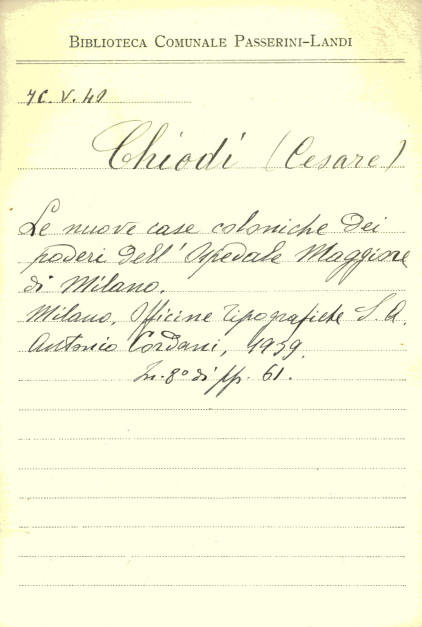 BIBLIOTECA COMUNALE PASSERINI-LANDI
7C. V. 41
Chiodi (Cesare)
Le nuove case coloniche dei
poderi dell'Ospedale Maggiore
di Milano.
Milano, Officine Tipografiche S. A.
Antonio Cordani, 1939.
In-8° di pp. 61.